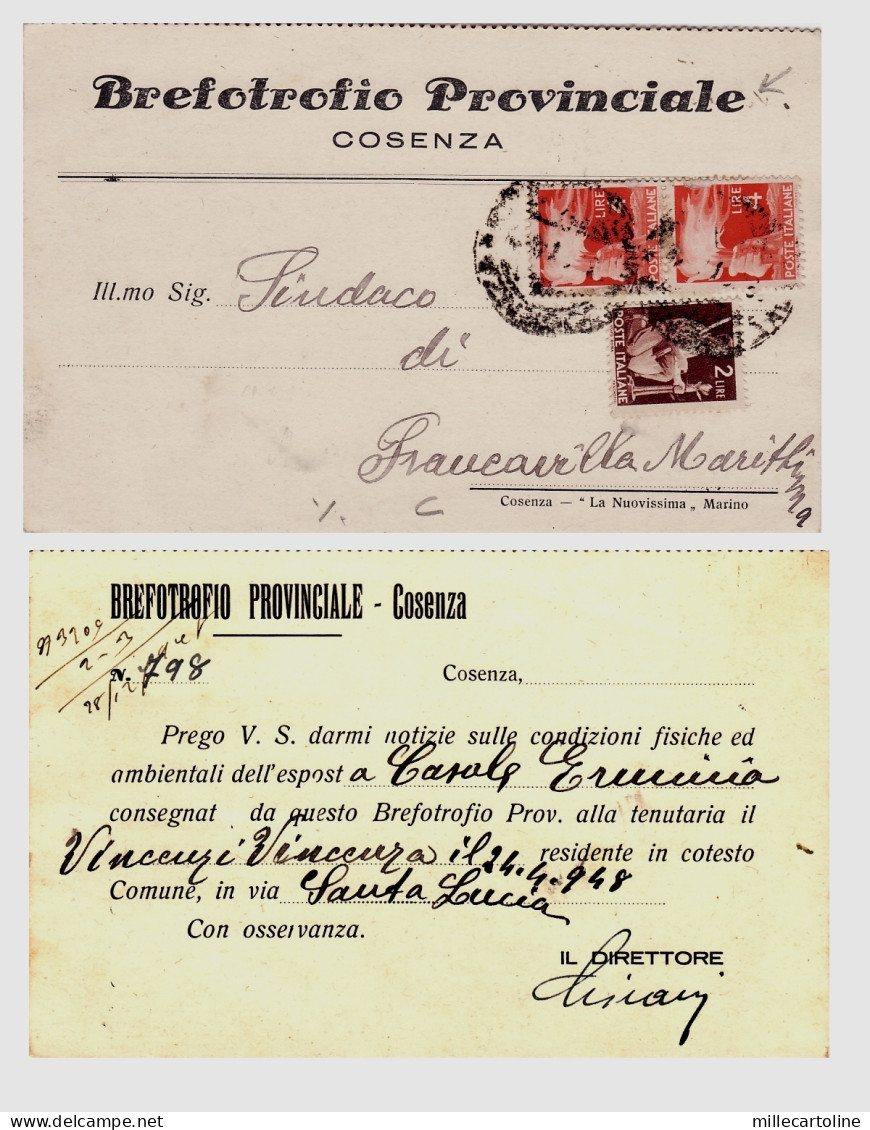 Brefotrofio Provinciale
COSENZA
LIRE 4 POSTE ITALIANE
LIRE 4 POSTE ITALIANE
Ill.mo Sig. Sindaco
di
POSTE ITALIANE 2 LIRE
Francavilla Marittima
Cosenza — “ La Nuovissima „ Marino
BREFOTROFIO PROVINCIALE - Cosenza
2-3
N. 798 Cosenza,
Prego V. S. darmi notizie sulle condizioni fisiche ed
ambientali dell'espost a Casole Erminia
consegnat da questo Brefotrofio Prov. alla tenutaria il
Vincenzi Vincenza il 24.4.948 residente in cotesto
Comune, in via Santa Lucia
Con osservanza.
IL DIRETTORE
millecartoline